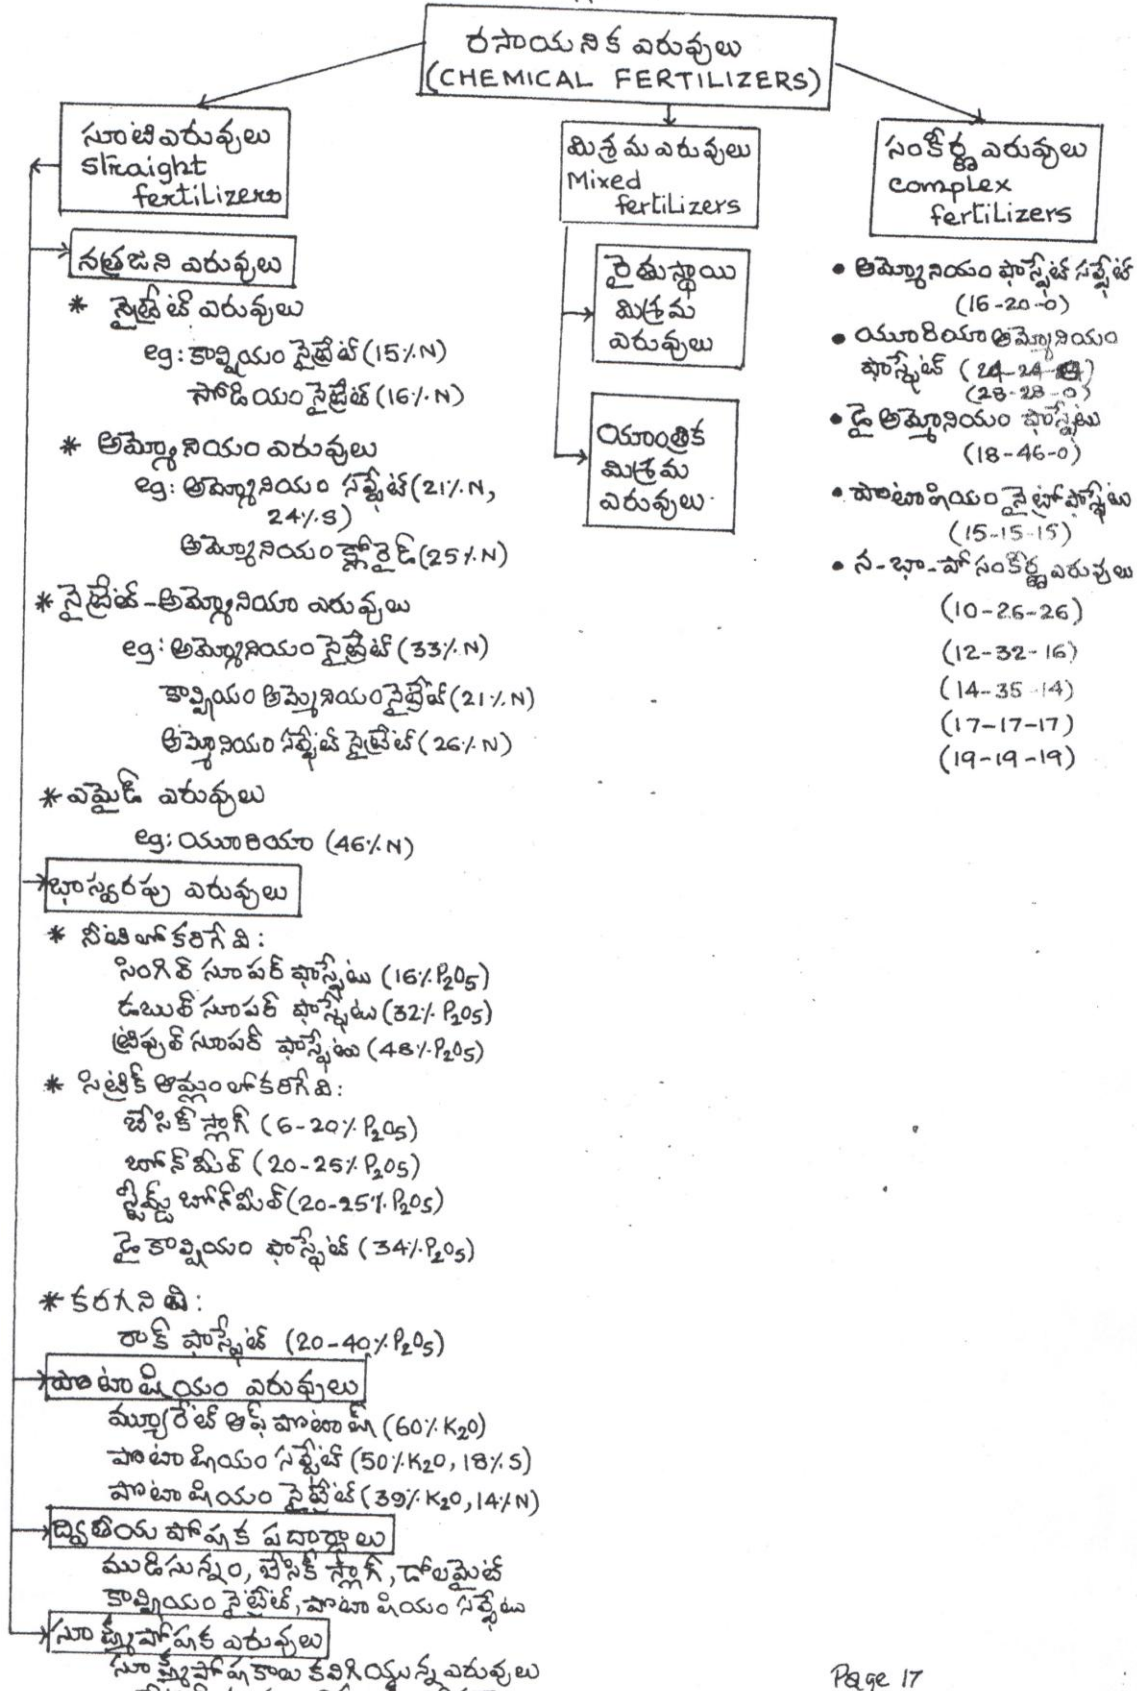 రసాయనిక ఎరువులు
(CHEMICAL FERTILIZERS)
సూటి ఎరువులు
straight
fertilizers
నత్రజని ఎరువులు
* నైట్రేట్ ఎరువులు
eg: కాల్షియం నైట్రేట్ (15%N)
సోడియం నైట్రేట్ (16%N)
* అమ్మోనియం ఎరువులు
eg: అమ్మోనియం సల్ఫేట్ (21%N,
24%S)
అమ్మోనియం క్లోరైడ్ (25%N)
* నైట్రేట్-అమ్మోనియా ఎరువులు
eg: అమ్మోనియం నైట్రేట్ (33%N)
కాల్షియం అమ్మోనియం నైట్రేట్ (21%N)
అమ్మోనియం సల్ఫేట్ నైట్రేట్ (26%N)
* ఎమైడ్ ఎరువులు
eg: యూరియా (46%N)
భాస్వరపు ఎరువులు
* నీటిలో కరిగేవి:
సింగిల్ సూపర్ ఫాస్ఫేటు (16%P₂O₅)
డబుల్ సూపర్ ఫాస్ఫేటు (32%P₂O₅)
ట్రిపుల్ సూపర్ ఫాస్ఫేటు (48%P₂O₅)
* సిట్రిక్ ఆమ్లంలో కరిగేవి:
బేసిక్ స్లాగ్ (6-20%P₂O₅)
బోన్ మీల్ (20-25%P₂O₅)
స్టీమ్డ్ బోన్ మీల్ (20-25%P₂O₅)
డై కాల్షియం ఫాస్ఫేట్ (34%P₂O₅)
* కరగనివి:
రాక్ ఫాస్ఫేట్ (20-40%P₂O₅)
పొటాషియం ఎరువులు
మ్యూరేట్ ఆఫ్ పొటాష్ (60%K₂O)
పొటాషియం సల్ఫేట్ (50%K₂O, 18%S)
పొటాషియం నైట్రేట్ (39%K₂O, 14%N)
ద్వితీయ పోషక పదార్థాలు
ముడిసున్నం, బేసిక్ స్లాగ్, డోలమైట్
కాల్షియం నైట్రేట్, పొటాషియం సల్ఫేటు
సూక్ష్మపోషక ఎరువులు
సూక్ష్మపోషకాలు కలిగియున్న ఎరువులు
మిశ్రమ ఎరువులు
Mixed
fertilizers
రైతుస్థాయి
మిశ్రమ
ఎరువులు
యాంత్రిక
మిశ్రమ
ఎరువులు
సంకీర్ణ ఎరువులు
complex
fertilizers
• అమ్మోనియం ఫాస్ఫేట్ సల్ఫేట్
(16-20-0)
• యూరియా అమ్మోనియం
ఫాస్ఫేట్ (24-24-0)
(28-28-0)
• డై అమ్మోనియం ఫాస్ఫేటు
(18-46-0)
• పొటాషియం నైట్రోఫాస్ఫేటు
(15-15-15)
• న-భా-పో సంకీర్ణ ఎరువులు
(10-26-26)
(12-32-16)
(14-35-14)
(17-17-17)
(19-19-19)
Page 17